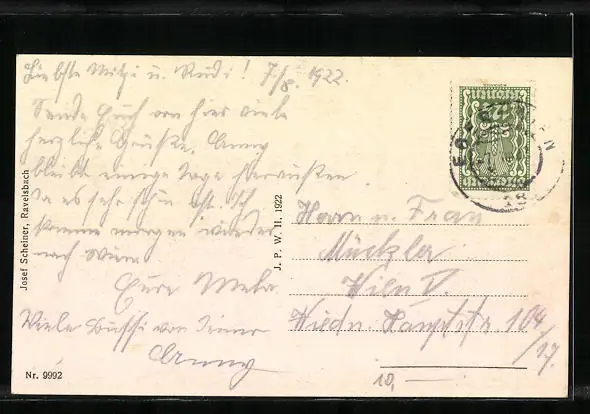 Liebste Mitzi u. Rudi! 7/8. 1922.
Sende Euch von hier viele
herzliche Grüsse. Anny
bleibt einige Tage heraussen
da es sehr schön ist. Ich
komme morgen wieder
nach Wien.
Eure Mela
Viele Bussi von Deiner
Anny
Herrn u. Frau
Mückler
Wien V.
Wiedn. Hauptstr. 104
/17.
10,—
Josef Scheiner, Ravelsbach
J. P. W. II. 1922
Nr. 9992